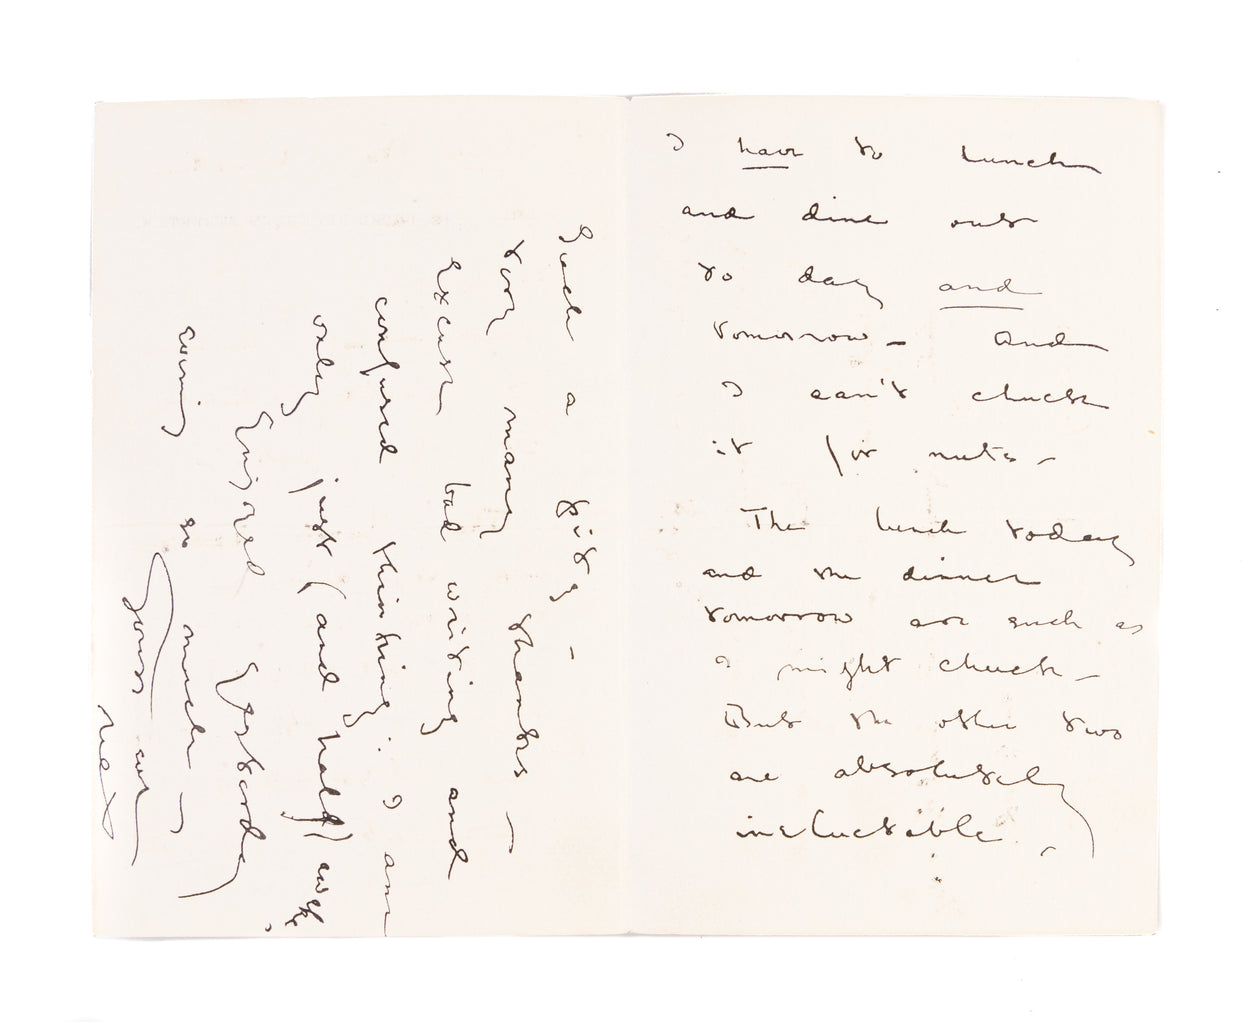 I have to lunch
and dine out
to day and
tomorrow – and
I can't chuck
it for nuts –
The lunch today
and the dinner
tomorrow are such as
I might chuck –
But the other two
are absolutely
ineluctable.
Such a pity –
Very many thanks –
Excuse bad writing and
confused thinking: I am
only just (and half) awake.
Enjoyed yesterday
evening so much –
Yours ever